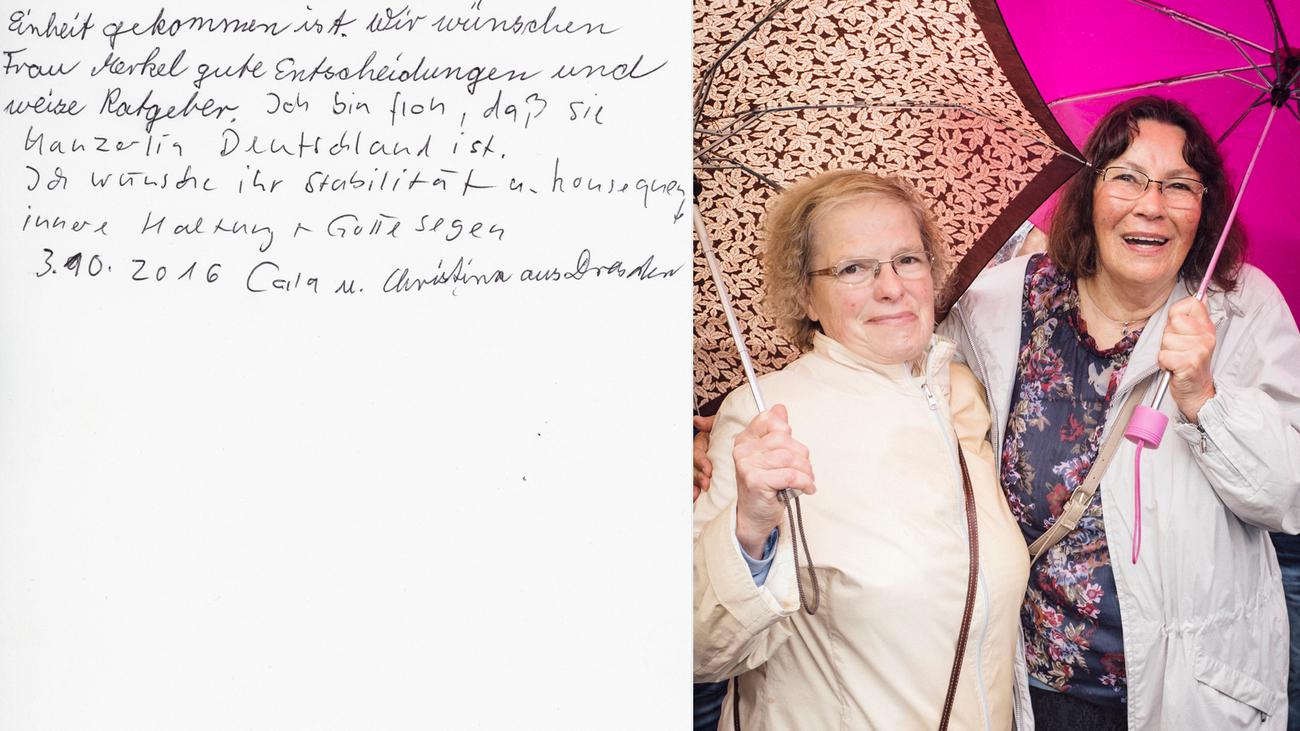 Einheit gekommen ist. Wir wünschen
Frau Merkel gute Entscheidungen und
weise Ratgeber. Ich bin froh, daß sie
Kanzerlin Deutschland ist.
Ich wünsche ihr Stabilität u. konsequente
innere Haltung + Gottes Segen
3.10.2016 Carla u. Christina aus Dresden